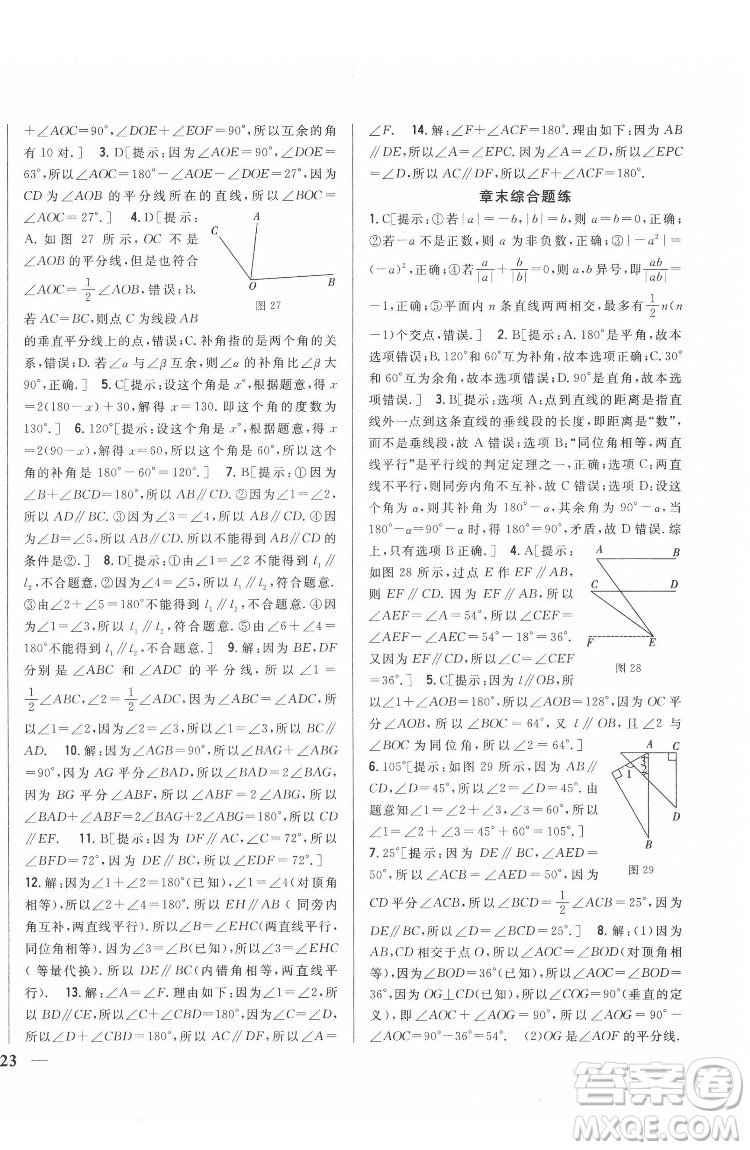 +∠AOC=90°,∠DOE+∠EOF=90°,所以互余的角
有10对.] 3. D[提示:因为∠AOE=90°,∠DOE=
63°,所以∠AOD=∠AOE-∠DOE=27°,因为
CD为∠AOB的平分线所在的直线,所以∠BOC=
∠AOC=27°.] 4. D[提示:
A. 如图27所示,OC不是
∠AOB的平分线,但是符合
∠AOC=1/2∠AOB,错误;B.
若AC=BC,则点C为线段AB
的垂直平分线上的点,错误;C. 补角指的是两个角的关
系,错误;D. 若∠α与∠β互余,则∠α的补角比∠β大
90°,正确.] 5. C[提示:设这个角是x°,根据题意,得
x=2(180-x)+30,解得x=130. 即这个角的度数为
130°.] 6. 120°[提示:设这个角为x°,根据题意,得
x=2(90-x),解得x=60. 所以这个角是60°,所以这个
角的补角180°-60°=120°.] 7. C[提示:①因为
∠B+∠BCD=180°,所以AB∥CD. ②因为∠1=∠2,
所以AD∥BC. ③因为∠3=∠4,所以AB∥CD. ④因为
∠B=∠5,所以AB∥CD. 所以不能得到AB∥CD的
条件是②.] 8. D[提示:①由∠1=∠2不能得到l₁∥
l₂,不合题意. ②由∠4=∠5不能得到l₁∥l₂,不合题
意. ③由∠2+∠5=180°不能得到l₁∥l₂,不合题意. ④
由∠1=∠3不能得到l₁∥l₂,不合题意. ⑤由∠6+∠4=
180°不能得到l₁∥l₂,不合题意.] 9. 解:因为BE,DF
分别是∠ABC和∠ADC的平分线,所以∠1=
1/2∠ABC,∠3=1/2∠ADC. 因为∠ABC=∠ADC,
所以∠1=∠3. 因为∠1=∠2,所以∠2=∠3,所以BC∥
AD. 10. 解:因为∠AGB=90°,所以∠BAG+∠ABG
=90°,因为AG平分∠BAD,所以∠BAD=2∠BAG,
因为BG平分∠ABF,所以∠ABF=2∠ABG,所以
∠BAD+∠ABF=2∠BAG+2∠ABG=180°,所以CD
∥EF. 11. B[提示:因为DF∥AC,∠C=72°,所以
∠BFD=72°,因为∠C=72°,所以∠BFD=∠C.]
12. 解:因为∠1+∠2=180°(已知),∠1=∠4(对顶角
相等),所以∠2+∠4=180°,所以EH∥AB(同旁内
角互补,两直线平行),所以∠B=∠EHC(两直线平行,
同位角相等). 因为∠3=∠B(已知),所以∠3=∠EHC
(等量代换). 所以DE∥BC(内错角相等,两直线平
行). 13. 解:∠A=∠F. 理由如下:因为∠1=∠2,所以
BD∥CE,所以∠C+∠CBD=180°,因为∠C=∠D,所
以∠D+∠CBD=180°,所以AC∥DF,所以∠A=
23
∠F. 14. 解:∠F+∠ACF=180°. 理由如下:因为AB
∥PF,所以∠A=∠EPC. 因为∠A=∠F,所以∠EPC
=∠F,所以AC∥DF,所以∠F+∠ACF=180°.
章末综合题练
1. C[提示:①若|a|=-b,|b|=b,则a=b=0,正确;
②若-a不是正数,则a为非负数,正确;③|-a²|=
(-a)²,正确;④若a/|a|+b/|b|=0,则a,b异号,即ab/|ab|=
-1,正确;⑤平面内n条直线两两相交,最多有1/2n(n
-1)个交点,错误.] 2. A[提示:A. 180°是平角,故本
选项正确;B. 120°与60°互为补角,故本选项错误;C. 30°
与60°互为余角,故本选项错误;D. 60°的补角是120°,
故本选项错误.] 3. C[提示:选项A,点到直线的距离指直线
外一点到这条直线的垂线段的长度,即距离是“数”,而
而不是垂线段,故A错误;选项B,“同位角相等,两直
线平行”是平行线的判定定理之一,故B错误;C. 两直
线不平行,则同旁内角不互补,故C正确;D. 设这个角
为α,则这个角的补角表示为180°-α,180°-α=α,当
180°-α=α时,α=90°,矛盾,故D错误. 综
上,只有选项C正确.] 4. A[提示:
如图28所示,过点E作EF∥AB,
则EF∥CD. 因为EF∥AB,所以
∠AEF=∠A=54°,所以∠CEF=
∠AEF-∠AEC=54°-18°=36°.
又因为EF∥CD,所以∠C=∠CEF
=36°.] 5. C[提示:因为l∥OB,所
以∠1+∠AOB=180°,所以∠AOB=128°,因为OC平
分∠AOB,所以∠BOC=64°,又l∥OB,且∠2与
∠BOC为同位角,所以∠2=64°.]
6. 105°[提示:如图29所示,因为
∠C=∠D=45°,所以∠2=45°,由
题意知∠2+∠3=60°,所以∠1=
45°+60°=105°.]
7. 25°[提示:因为∠B=∠AED=
50°,所以DE∥BC,∠ACB=
∠AED,所以∠ACB=50°,因为
CD平分∠ACB,所以∠BCD=1/2∠ACB=25°,因为
DE∥BC,所以∠EDC=∠BCD=25°.] 8. 解:(1)因为
AB,CD相交于点O,所以∠AOC=∠BOD(对顶角相
等),因为∠BOD=36°(已知),所以∠AOC=36°,
因为OG⊥CD(已知),所以∠COG=90°(垂直的定义),
即∠AOC+∠AOG=90°,所以∠AOG=90°-
∠AOC=90°-36°=54°. (2)OG是∠AOF的平分线.
C
A
O
B
图27
A
B
C
D
F
E
图28
A
C
3
2
1
D
B
图29
答案圈
MXQE.COM